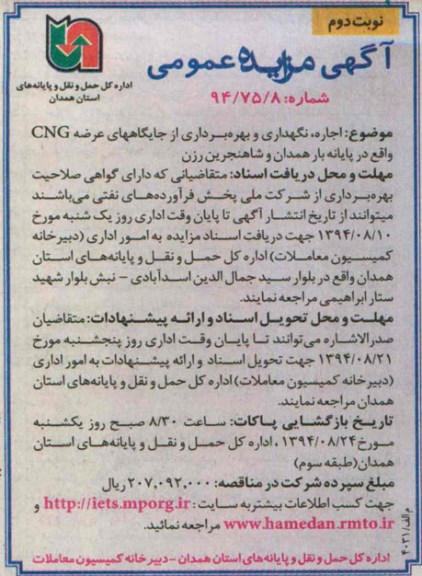 نوبت دوم
آگهی مزایده عمومی
شماره: ۹۴/۷۵/۸
اداره کل حمل و نقل و پایانه‌های
استان همدان
موضوع: اجاره، نگهداری و بهره‌برداری از جایگاههای عرضه CNG
واقع در پایانه بار همدان و شاهنجرین رزن
مهلت و محل دریافت اسناد: متقاضیانی که دارای گواهی صلاحیت
بهره‌برداری از شرکت ملی پخش فرآورده‌های نفتی می‌باشند
میتوانند از تاریخ انتشار آگهی تا پایان وقت اداری روز یک شنبه مورخ
۱۳۹۴/۰۸/۱۰ جهت دریافت اسناد مزایده به امور اداری (دبیرخانه
کمیسیون معاملات) اداره کل حمل و نقل و پایانه‌های استان
همدان واقع در بلوار سید جمال الدین اسدآبادی - نبش بلوار شهید
ستار ابراهیمی مراجعه نمایند.
مهلت و محل تحویل اسناد و ارائه پیشنهادات: متقاضیان
صدرالاشاره می‌توانند تا پایان وقت اداری روز پنجشنبه مورخ
۱۳۹۴/۰۸/۲۱ جهت تحویل اسناد و ارائه پیشنهادات به امور اداری
(دبیرخانه کمیسیون معاملات) اداره کل حمل و نقل و پایانه‌های استان
همدان مراجعه نمایند.
تاریخ بازگشایی پاکات: ساعت ۸/۳۰ صبح روز یکشنبه
مورخ ۱۳۹۴/۰۸/۲۴، اداره کل حمل و نقل و پایانه‌های استان
همدان (طبقه سوم)
مبلغ سپرده شرکت در مناقصه: ۲۰۷,۰۹۲,۰۰۰ ریال
جهت کسب اطلاعات بیشتر به سایت: http://iets.mporg.ir و
www.hamedan.rmto.ir مراجعه نمائید.
م الف/۴۰۳۱
اداره کل حمل و نقل و پایانه‌های استان همدان - دبیرخانه کمیسیون معاملات